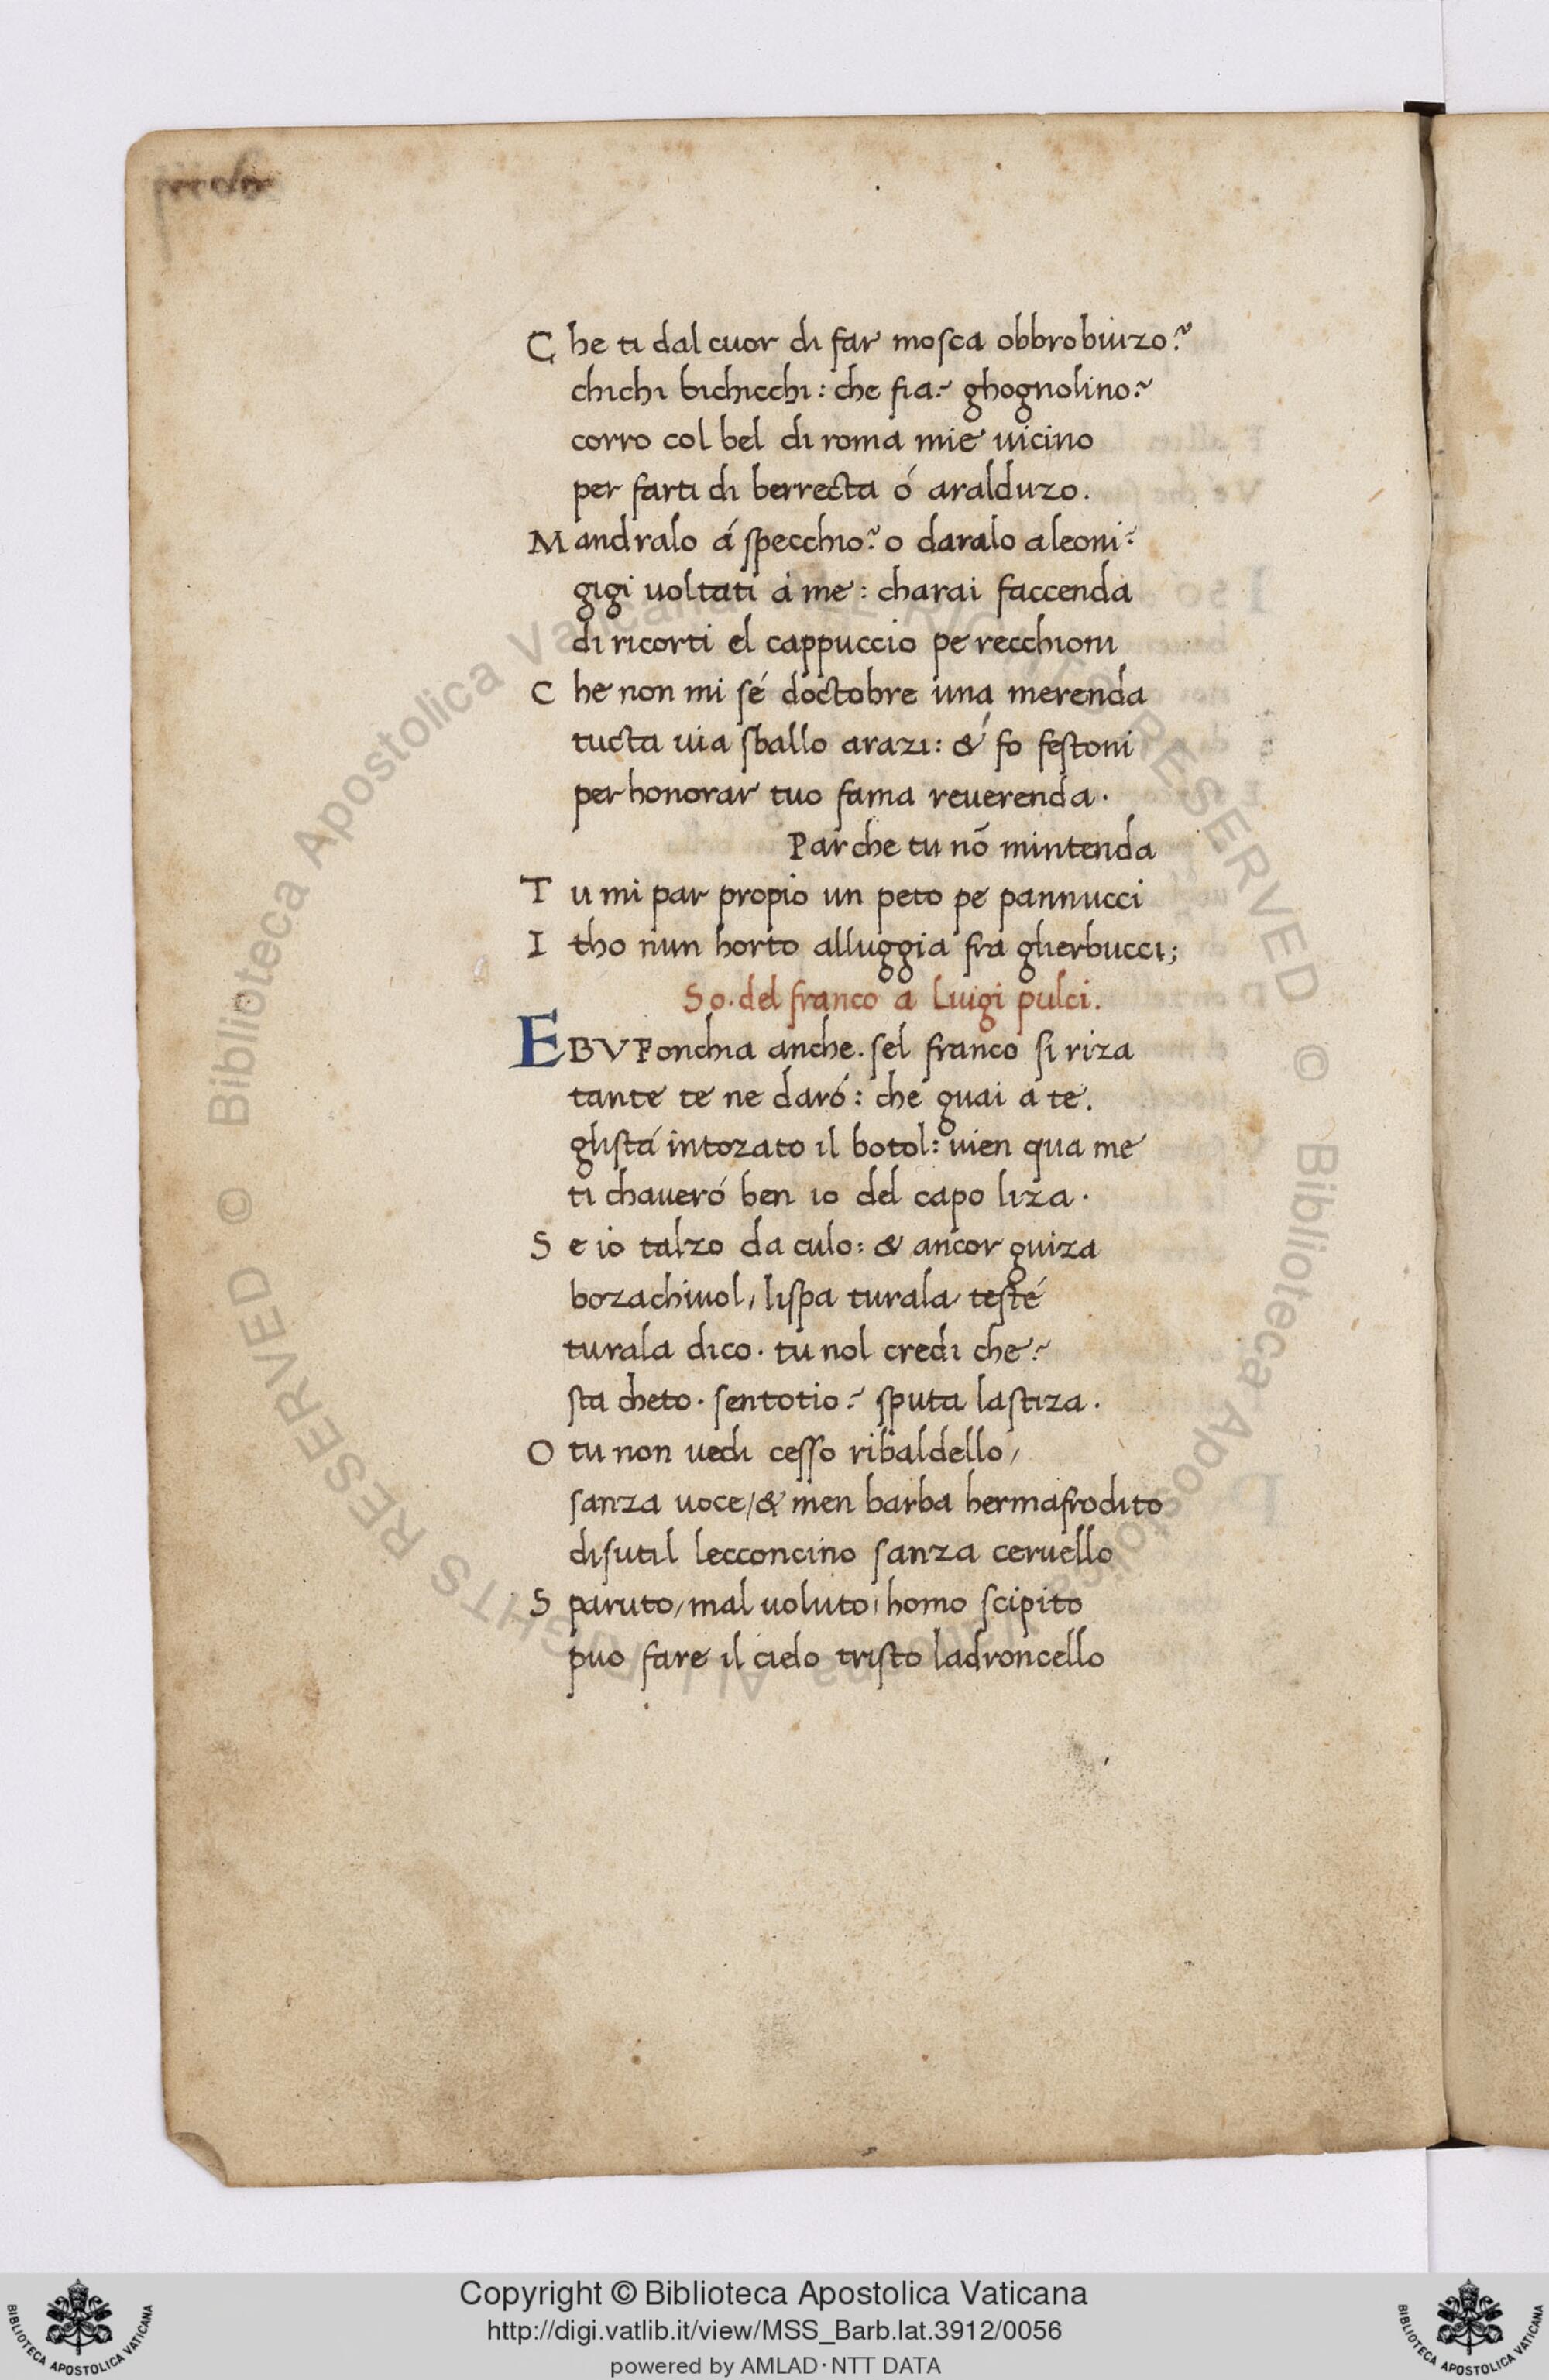 C he ti dal cuor di far mosca obbrobiuzo?
chichi bichicchi: che fia? ghognolino?
corro col bel di roma mie uicino
per farti di berrecta ó aralduzo.
M andralo á specchio? o daralo aleoni?
gigi uoltati á me: charai faccenda
di ricorti el cappuccio pe recchioni
C he non mi sé doctobre una merenda
tucta uia sballo arazi: & fo festoni
per honorar tuo fama reuerenda.
Par che tu nō mintenda
T u mi par propio un peto pe pannucci
I tho nun horto alluggia fra gherbucci;
So. del franco a Luigi pulci.
EBV Fonchia anche. sel franco si riza
tante te ne daró: che guai a te.
glistá intozato il botol: uien qua me
ti chaueró ben io del capo liza.
S e io talzo da culo: & ancor guiza
bozachiuol, lispa turala testé
turala dico. tu nol credi che?
sta cheto. sentotio? sputa lastiza.
O tu non uedi cesso ribaldello/
sanza uoce/& men barba hermafrodito
disutil lecconcino sanza ceruello
S paruto/mal uoluto/homo scipito
puo fare il cielo tristo ladroncello
© Biblioteca Apostolica Vaticana ALL RIGHTS RESERVED © Biblioteca Apostolica Vaticana ALL RIGHTS RESERVED
Copyright © Biblioteca Apostolica Vaticana
http://digi.vatlib.it/view/MSS_Barb.lat.3912/0056
powered by AMLAD·NTT DATA
BIBLIOTECA APOSTOLICA VATICANA
BIBLIOTECA APOSTOLICA VATICANA